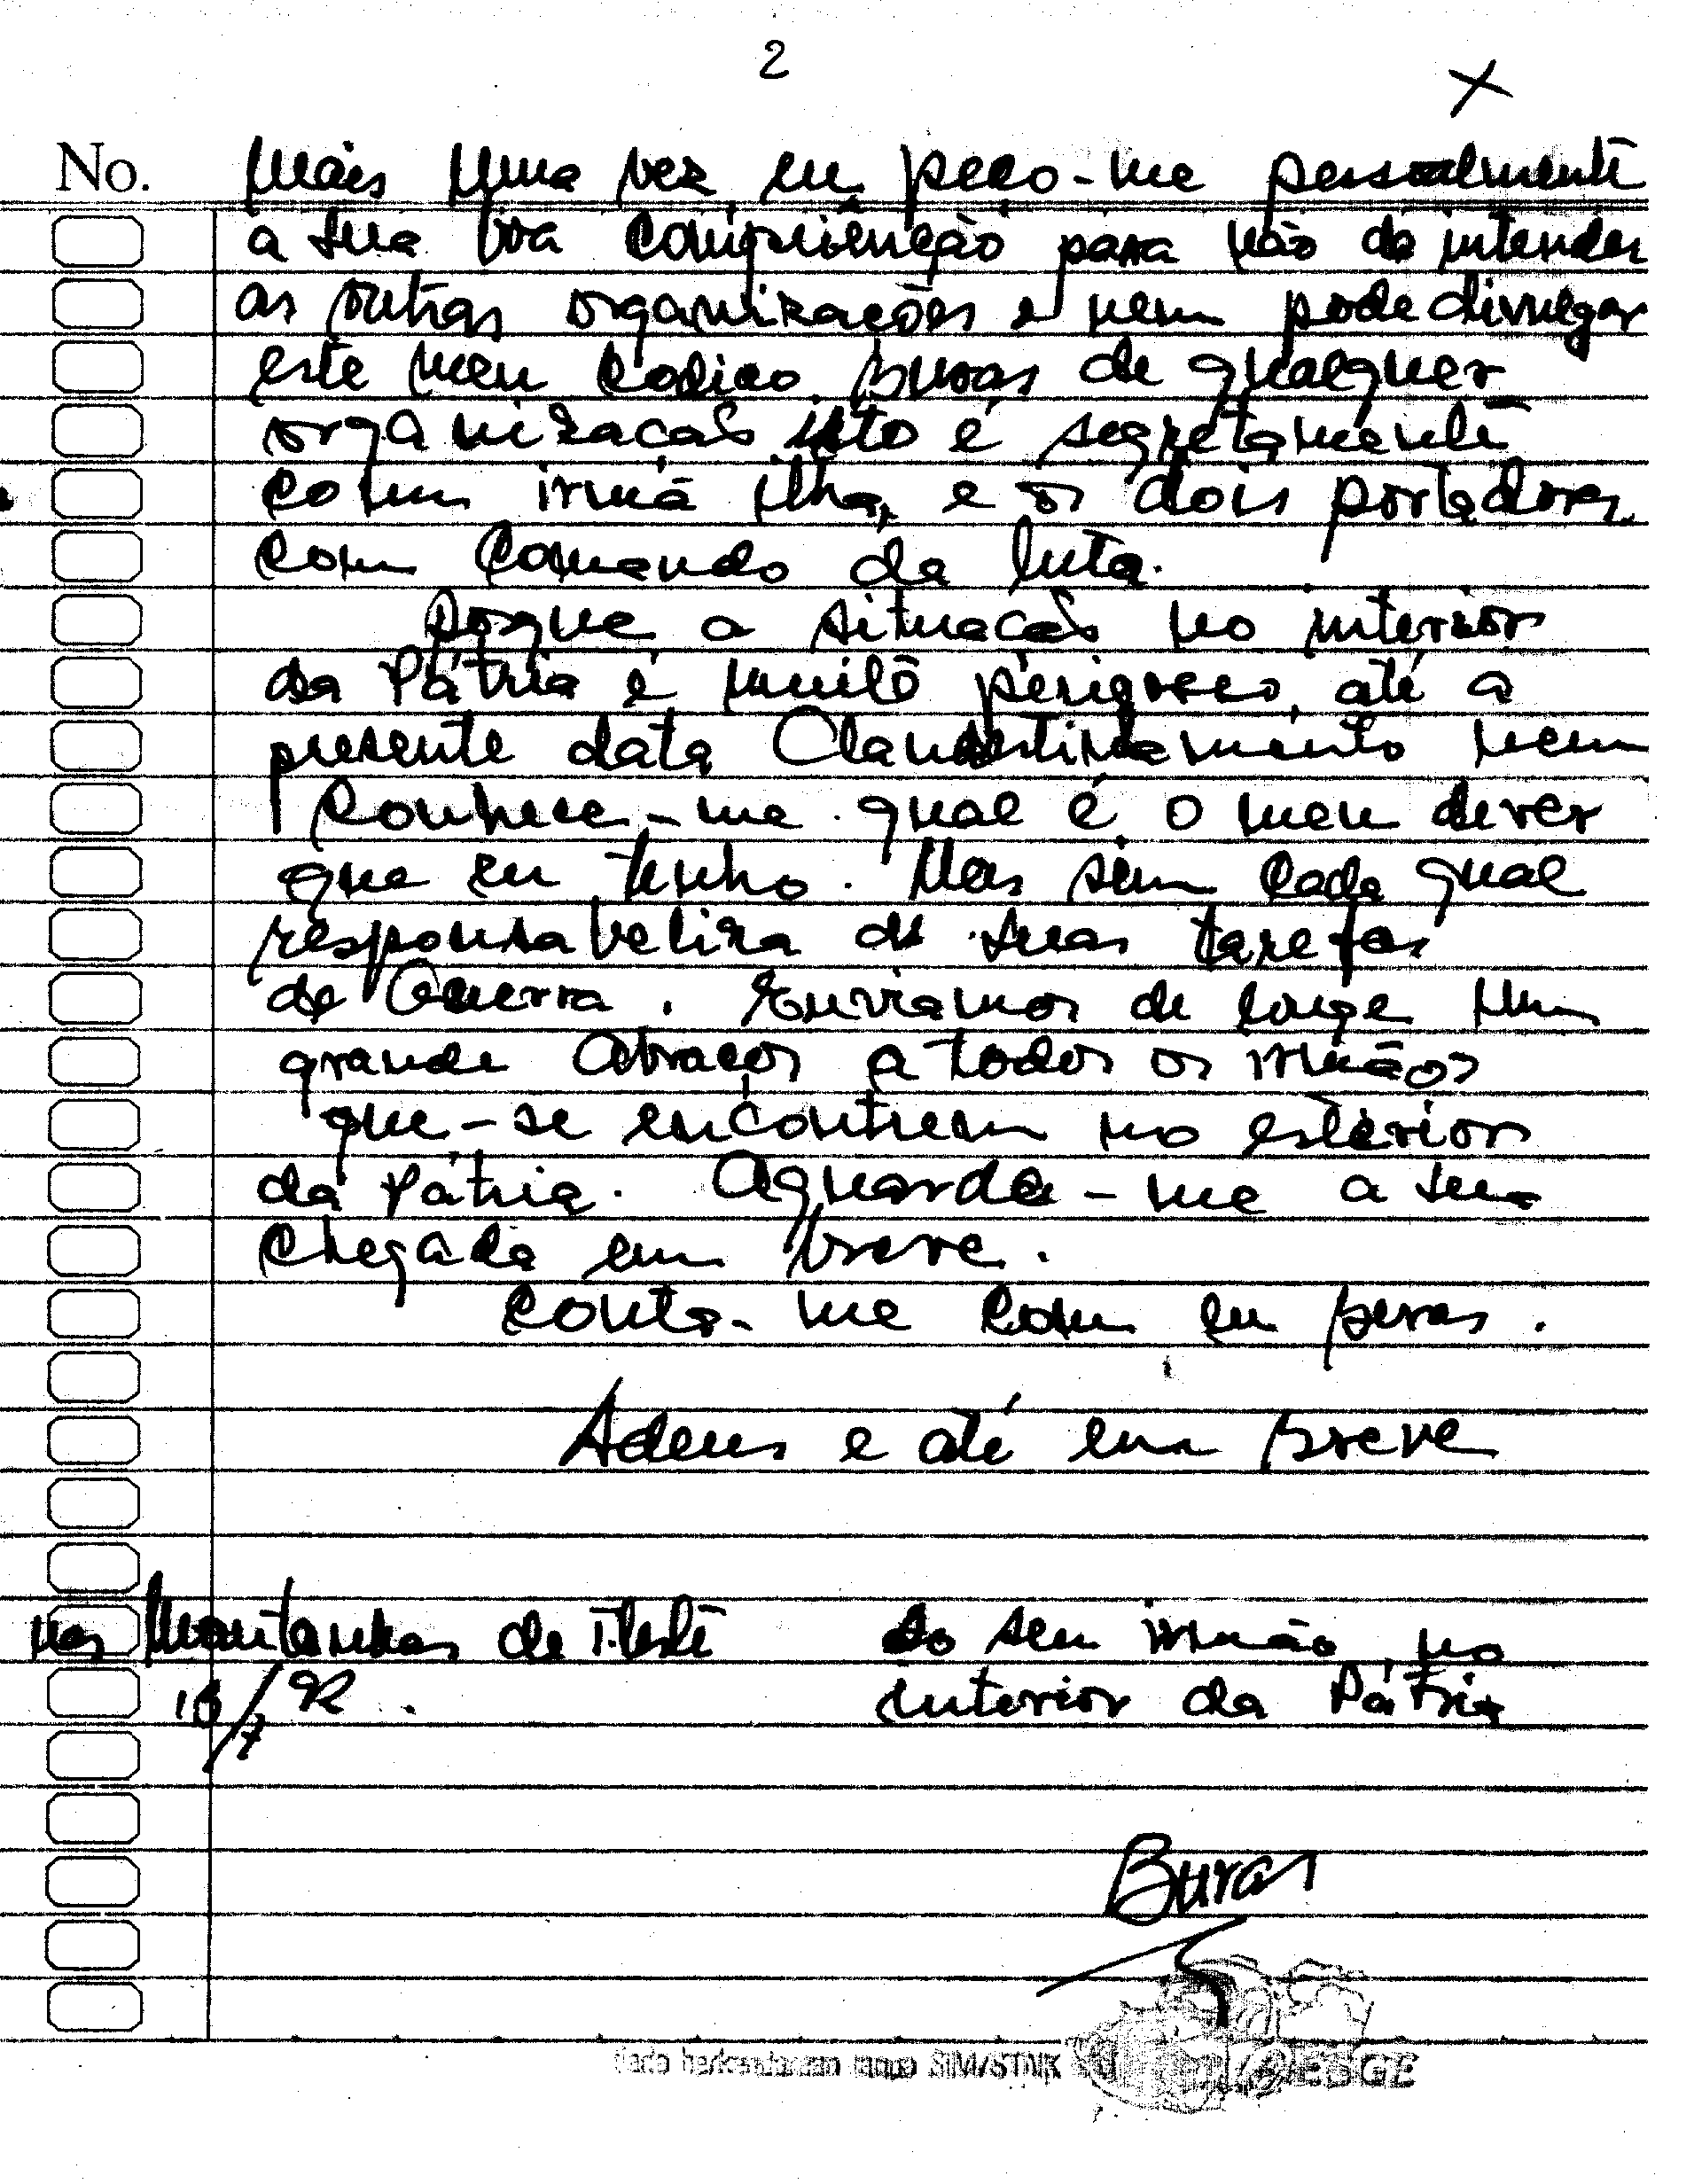 2
No. Mais uma vez eu peço-me pessoalmente
a sua boa compriênção para não dá intender
as outras organizações e nem pode divulgar
este meu codico Buras de qualquer
organizacaõ isto é segretamente
com irmã Ilha, e os dois portadores
com Comando da luta.
Porque a situacaõ no interior
da Pátria é muito périgoso, até a
presente data Clandestinamento nem
Conhece-me qual é o meu dever
que eu tenho. Mas sim cada qual
responsabeliza de suas tarefas
de Guerra. Enviamos de longe um
grande abraços a todos os irmãos
que-se encontram no esterior
da Pátria. Aguarda-me a sua
chegada em breve.
Conta-me com eu buras.
Adeus e até em breve
nas Montanhas de T. Leste do seu irmão no
16/7/92. interior da Pátria
Buras
SIM/STNK